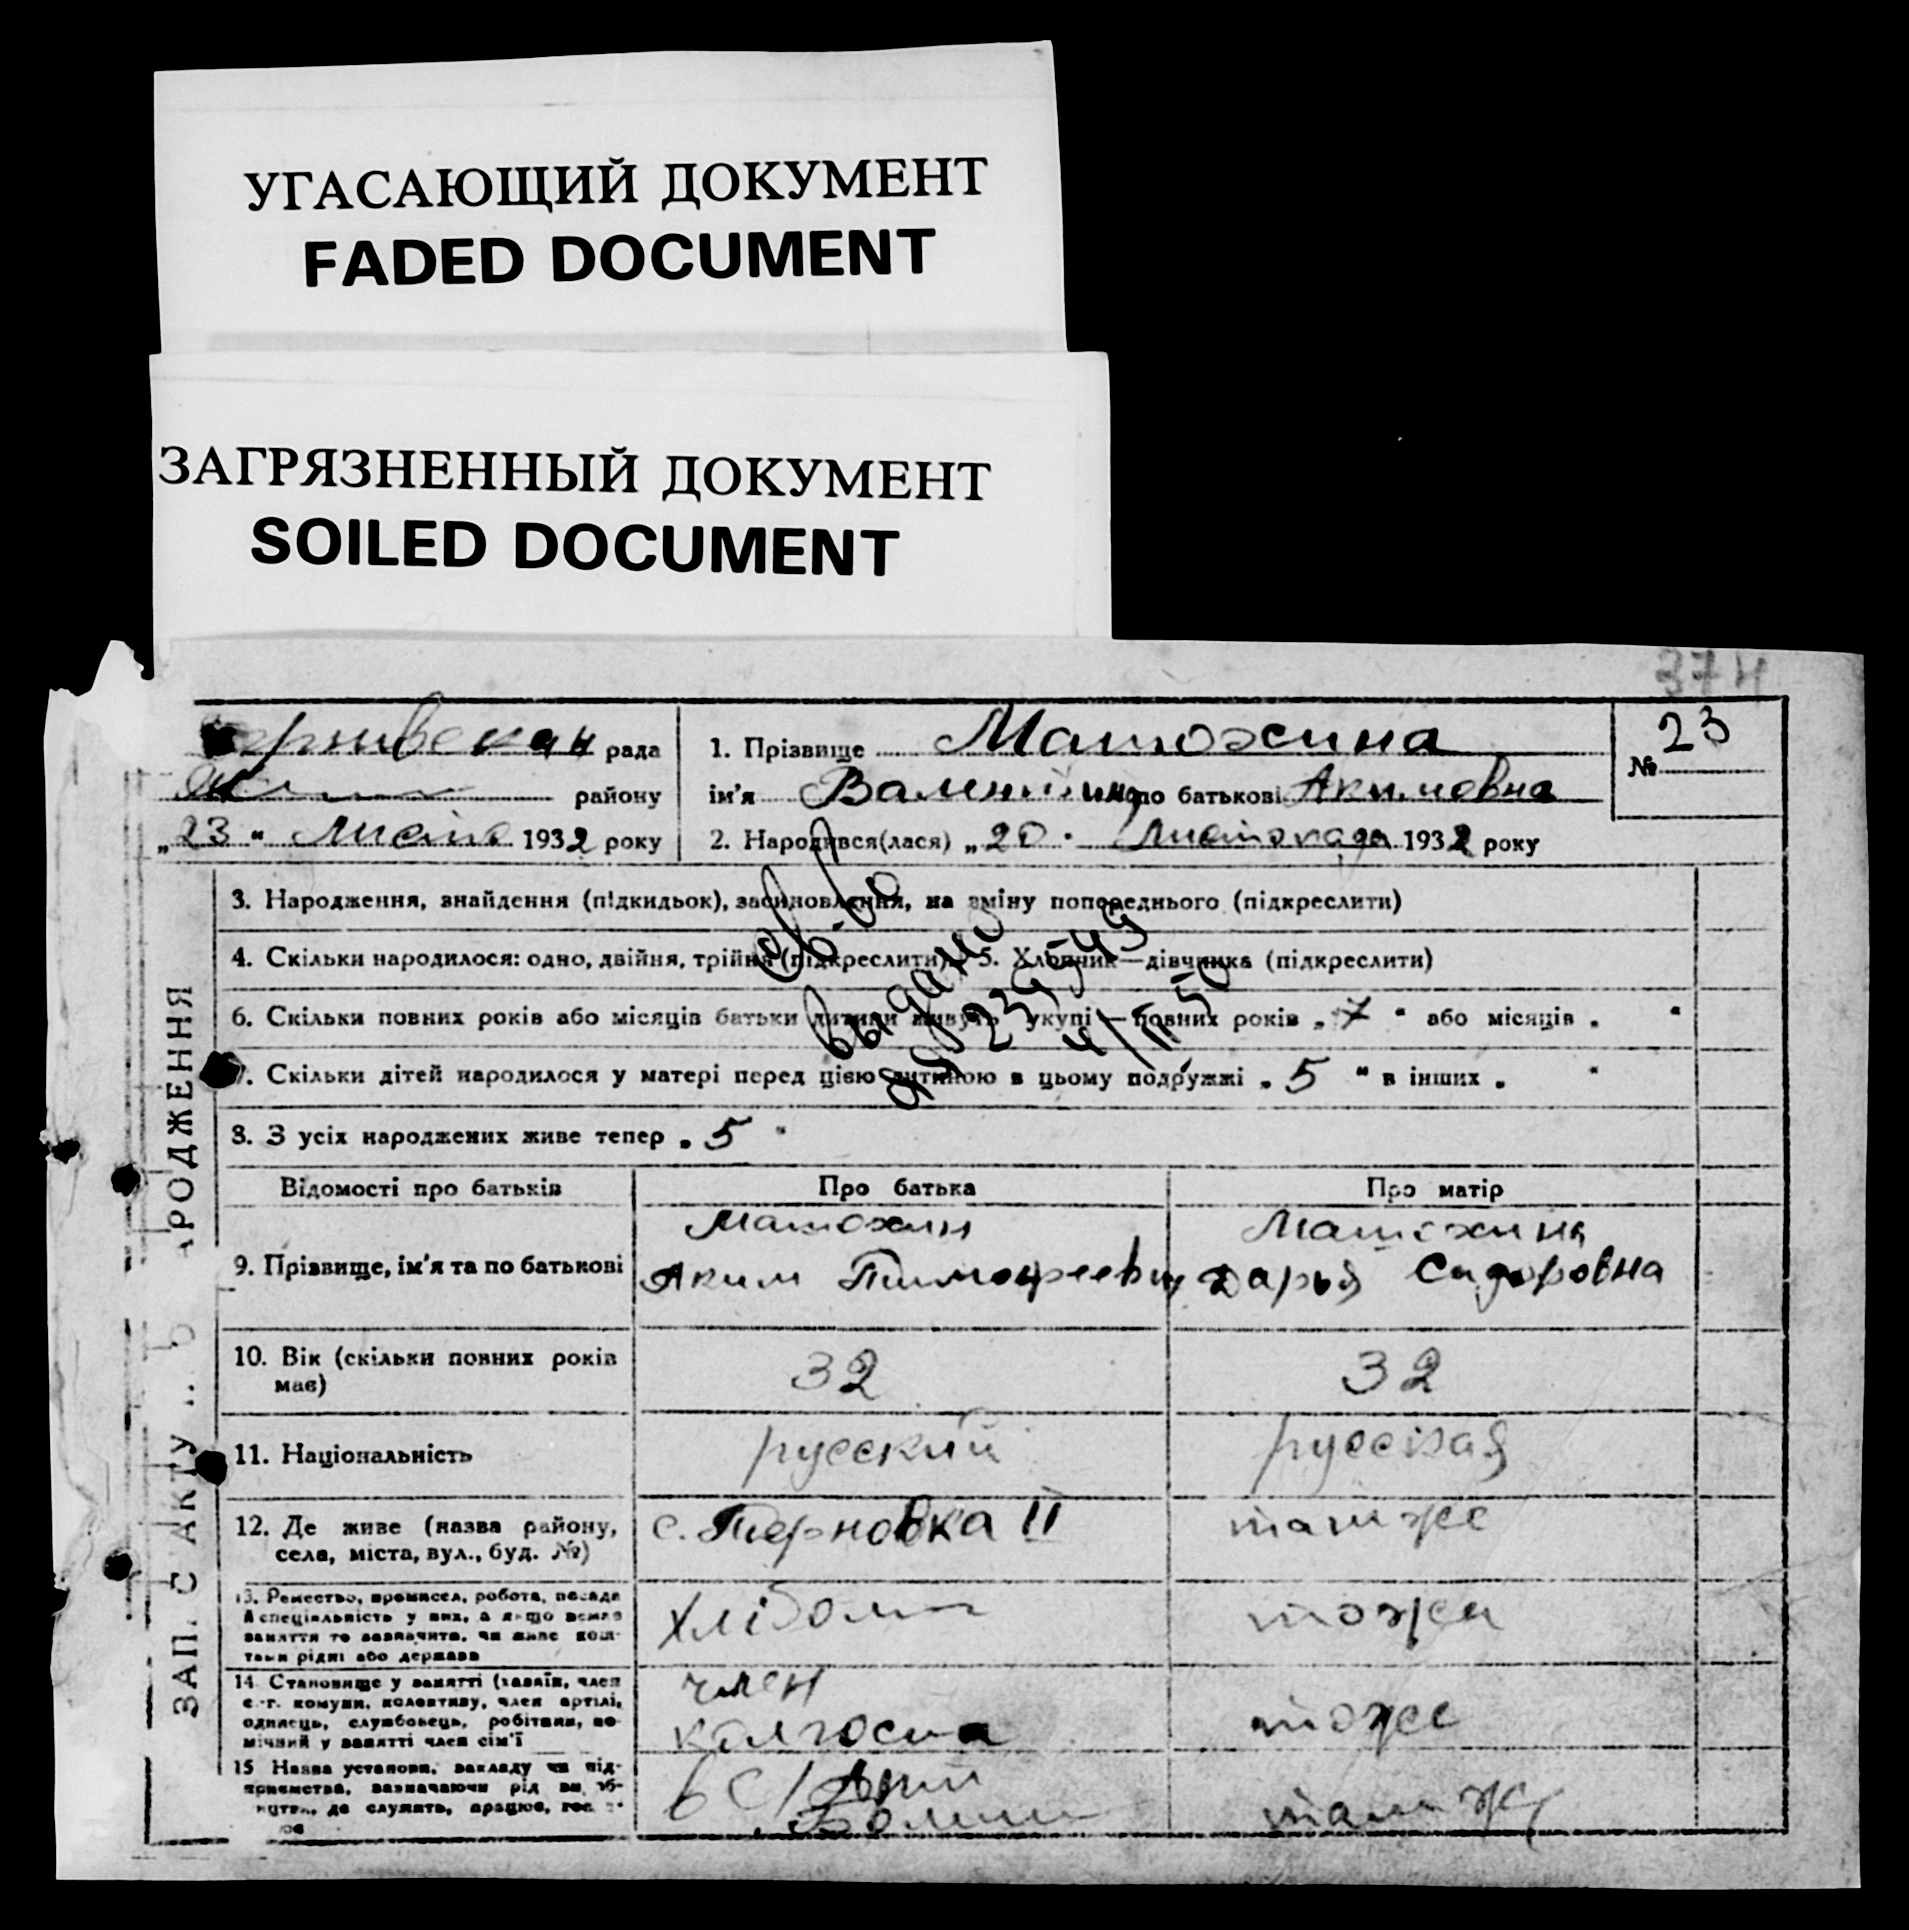 УГАСАЮЩИЙ ДОКУМЕНТ
FADED DOCUMENT
ЗАГРЯЗНЕННЫЙ ДОКУМЕНТ
SOILED DOCUMENT
374
рада
району
„23“ 1932 року
1. Прізвище Матюхина
ім'я Валентина по батькові Акимовна
2. Народився(лася) „20“ Листопада 1932 року
№ 23
3. Народження, знайдення (підкидьок), засиновлення, на зміну попереднього (підкреслити)
4. Скільки народилося: одно, двійня, трійня (підкреслити) 5. Хлопчик—дівчинка (підкреслити)
6. Скільки повних років або місяців батьки дитини живуть укупі—повних років „7“ або місяців „ “
7. Скільки дітей народилося у матері перед цією дитиною в цьому подружжі „5“ в інших „ “
8. З усіх народжених живе тепер „5“
выдано
Відомості про батьків Про батька Про матір
9. Прізвище, ім'я та по батькові
Матюхин
Аким Тимофеевич
Матюхина
Дарья Сидоровна
10. Вік (скільки повних років має) 32 32
11. Національність русский русская
12. Де живе (назва району, села, міста, вул., буд. №)
с. Терновка II
там же
13. Ремество, промисел, робота, посада
й спеціяльність у них, а якщо немає
заняття то зазначити, чи живе кош-
тами рідні або держави
тоже
14 Становище у занятті (хазяїн, член
с.-г. комуни, колективу, член артілі,
одинець, службовець, робітник, по-
мічний у занятті член сім'ї
член
колгоспа
тоже
15 Назва установи, закладу чи під-
приємства, зазначаючи рід
де служить, працює,
там же